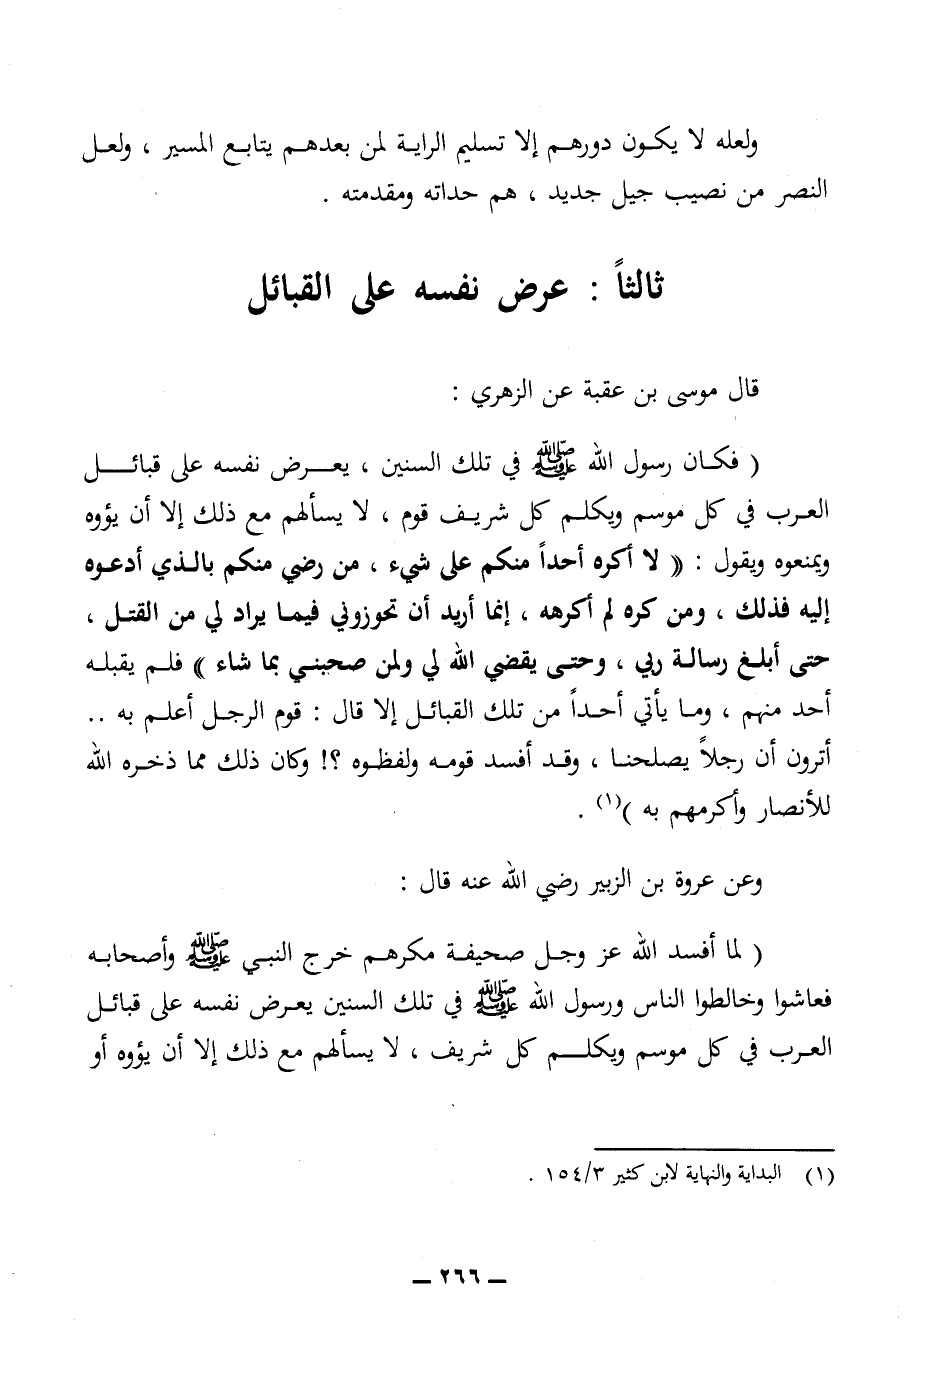 ولعله لا يكون دورهم إلا تسليم الراية لمن بعدهم يتابع المسير ، ولعل
النصر من نصيب جيل جديد ، هم حداته ومقدمته .
ثالثاً : عرض نفسه على القبائل
قال موسى بن عقبة عن الزهري :
( فكان رسول الله ﷺ في تلك السنين ، يعرض نفسه على قبائل
العرب في كل موسم ويكلم كل شريف قوم ، لا يسألهم مع ذلك إلا أن يؤوه
ويمنعوه ويقول : « لا أكره أحداً منكم على شيء ، من رضي منكم بالذي أدعوه
إليه فذلك ، ومن كره لم أكرهه ، إنما أريد أن تحوزوني فيما يراد لي من القتل ،
حتى أبلغ رسالة ربي ، وحتى يقضي الله لي ولمن صحبني بما شاء » فلم يقبله
أحد منهم ، وما يأتي أحداً من تلك القبائل إلا قال : قوم الرجل أعلم به ..
أترون أن رجلاً يصلحنا ، وقد أفسد قومه ولفظوه ؟! وكان ذلك مما ذخره الله
للأنصار وأكرمهم به )(١) .
وعن عروة بن الزبير رضي الله عنه قال :
( لما أفسد الله عز وجل صحيفة مكرهم خرج النبي ﷺ وأصحابه
فعاشوا وخالطوا الناس ورسول الله ﷺ في تلك السنين يعرض نفسه على قبائل
العرب في كل موسم ويكلم كل شريف ، لا يسألهم مع ذلك إلا أن يؤوه أو
(١) البداية والنهاية لابن كثير ١٥٤/٣ .
— ٢٦٦ —